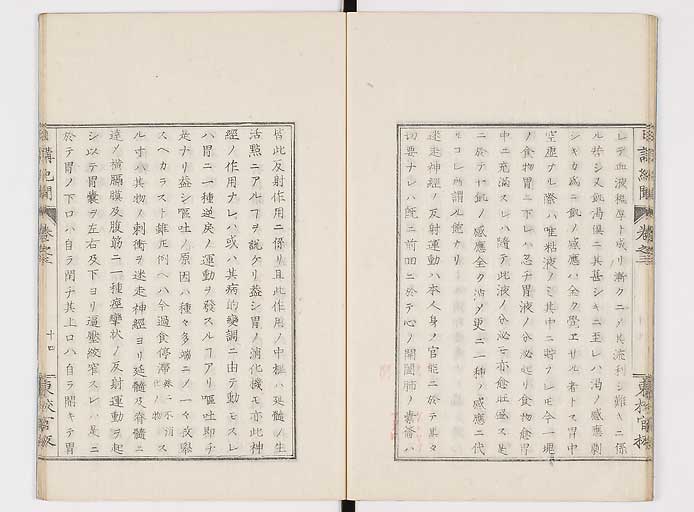 シテ血液稠厚ト成リ漸クニ〆其流利シ難キニ係
ル若シ又飢渇倶ニ其甚シキニ至レハ渇ノ感應劇
シキカ為ニ飢ノ感應ハ全ク覺エサル者トス胃中
空虚ナル際ハ唯粘液ノミ其中ニ
ノ食物胃ニ下レハ忽チ胃液ノ分泌起リ食物愈胃
中ニ充滿スレハ隨テ此液ノ分泌モ亦愈旺盛ス是
ニ於テ乎飢ノ感應全ク消〆更ニ一種ノ感應ニ代
ルコレ所謂ル飽ナリ
迷走神經ノ反射運動ハ本人身ノ官能ニ於テ其々
切要ナレハ既ニ前回ニ於テ心ノ開闔肺ノ橐籥ハ
皆此反射作用ニ係リ且此作用ノ中樞ハ延髓ノ生
活點ニアルヿヲ説ケリ蓋シ胃ノ消化機モ亦此神
經ノ作用ナレハ或ハ其病的變調ニ由テ動モスレ
ハ胃ニ一種逆戻ノ運動ヲ發スルヿアリ嘔吐即チ
是ナリ蓋シ嘔吐ノ原因ハ種々多端ニ〆一々枚擧
スヘカラスト雖モ例ヘハ今過食停滯 ス
ル寸ハ其物ノ刺衝ヲ迷走神經ヨリ延髓及脊髓ニ
達〆横膈膜及腹筋ニ一種痙攣狀ノ反射運動ヲ起
シ以テ胃囊ヲ左右及下ヨリ逼壓絞窄スレハ是ニ
於テ胃ノ下口ハ自ラ閉チ其上口ハ自ラ開キテ胃
講紀聞
卷之三
十四